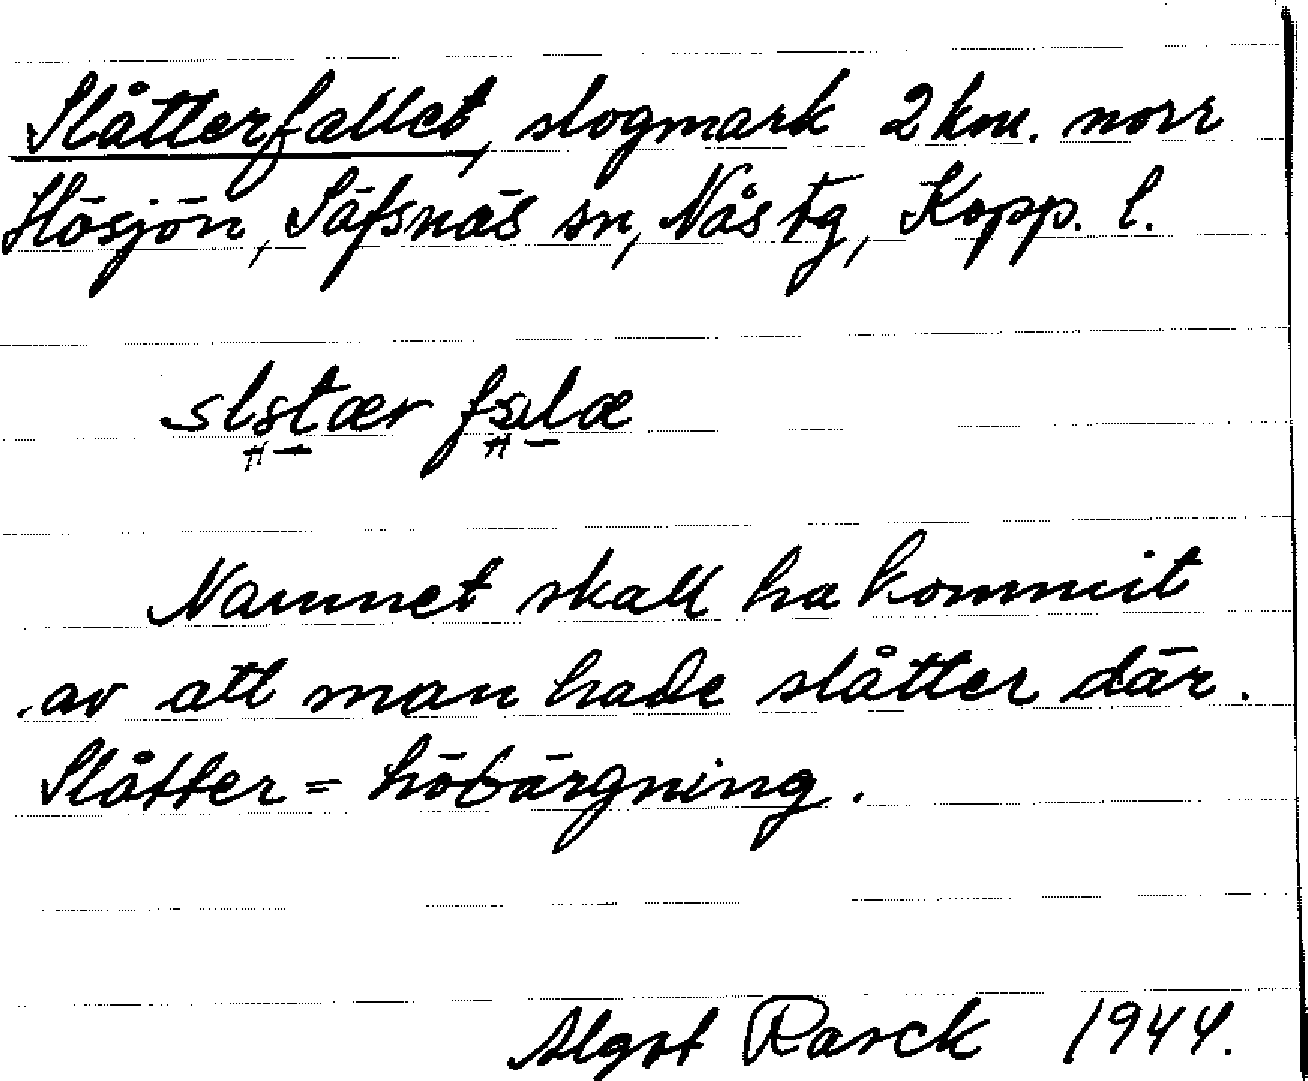 Slåtterfallet, slogmark 2 km. norr
Hösjön, Säfsnäs sn, Nås tg, Kopp. l.
Namnet skall ha kommit
av att man hade slåtter där.
Slåtter = höbärgning.
Algot Rasck 1944.